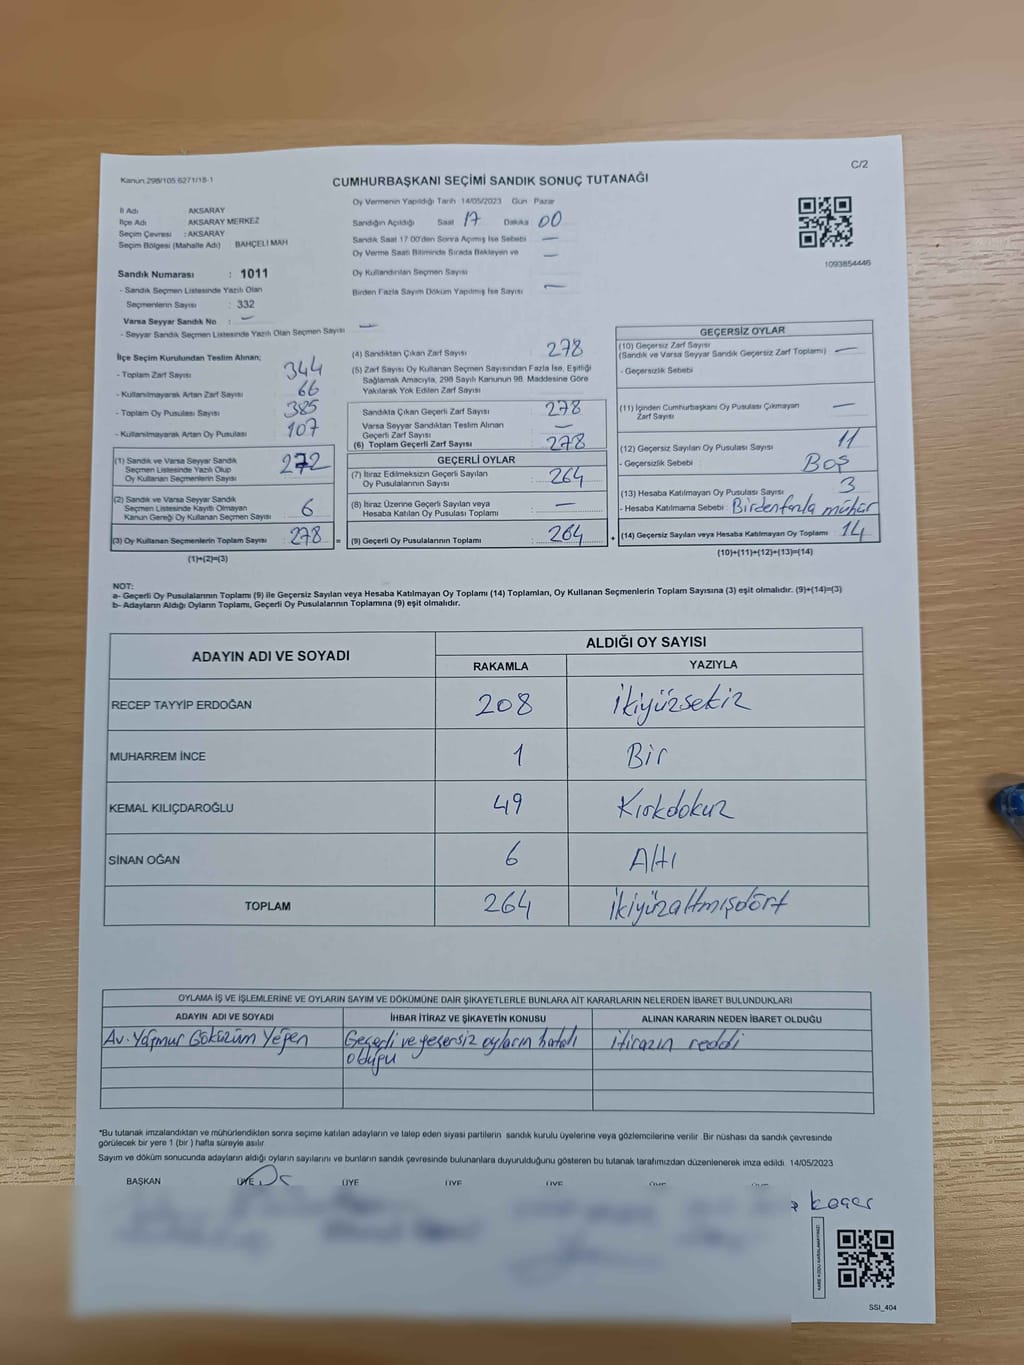 C/2
Kanun 298/105 6271/18-1
CUMHURBAŞKANI SEÇİMİ SANDIK SONUÇ TUTANAĞI
İl Adı AKSARAY
İlçe Adı AKSARAY MERKEZ
Seçim Çevresi : AKSARAY
Seçim Bölgesi (Mahalle Adı) BAHÇELİ MAH
Oy Vermenin Yapıldığı Tarih 14/05/2023 Gün Pazar
Sandığın Açıldığı Saat 17 Dakika 00
Sandık Saat 17 00'den Sonra Açımış İse Sebebi —
Oy Verme Saati Bitiminde Sırada Bekleyen ve —
Oy Kullandırılan Seçmen Sayısı
Birden Fazla Sayım Döküm Yapılmış İse Sayısı —
1093854446
Sandık Numarası : 1011
- Sandık Seçmen Listesinde Yazılı Olan
Seçmenlerin Sayısı : 332
Varsa Seyyar Sandık No : —
- Seyyar Sandık Seçmen Listesinde Yazılı Olan Seçmen Sayısı —
İlçe Seçim Kurulundan Teslim Alınan;
- Toplam Zarf Sayısı 344
- Kullanılmayarak Artan Zarf Sayısı 66
- Toplam Oy Pusulası Sayısı 385
- Kullanılmayarak Artan Oy Pusulası 107
(1) Sandık ve Varsa Seyyar Sandık
Seçmen Listesinde Yazılı Olup
Oy Kullanan Seçmenlerin Sayısı 272
(2) Sandık ve Varsa Seyyar Sandık
Seçmen Listesinde Kayıtlı Olmayan
Kanun Gereği Oy Kullanan Seçmen Sayısı 6
(3) Oy Kullanan Seçmenlerin Toplam Sayısı 278 =
(1)+(2)=(3)
(4) Sandıktan Çıkan Zarf Sayısı 278
(5) Zarf Sayısı Oy Kullanan Seçmen Sayısından Fazla İse, Eşitliği
Sağlamak Amacıyla, 298 Sayılı Kanunun 98. Maddesine Göre
Yakılarak Yok Edilen Zarf Sayısı
Sandıkta Çıkan Geçerli Zarf Sayısı 278
Varsa Seyyar Sandıktan Teslim Alınan
Geçerli Zarf Sayısı —
(6) Toplam Geçerli Zarf Sayısı 278
GEÇERLİ OYLAR
(7) İtiraz Edilmeksizin Geçerli Sayılan
Oy Pusulalarının Sayısı 264
(8) İtiraz Üzerine Geçerli Sayılan veya
Hesaba Katılan Oy Pusulası Toplamı —
(9) Geçerli Oy Pusulalarının Toplamı : 264 +
GEÇERSİZ OYLAR
(10) Geçersiz Zarf Sayısı
(Sandık ve Varsa Seyyar Sandık Geçersiz Zarf Toplamı) —
- Geçersizlik Sebebi
(11) İçinden Cumhurbaşkanı Oy Pusulası Çıkmayan
Zarf Sayısı —
(12) Geçersiz Sayılan Oy Pusulası Sayısı 11
- Geçersizlik Sebebi Boş
(13) Hesaba Katılmayan Oy Pusulası Sayısı 3
- Hesaba Katılmama Sebebi : Birdenfazla mühür
(14) Geçersiz Sayılan veya Hesaba Katılmayan Oy Toplamı 14
(10)+(11)+(12)+(13)=(14)
NOT:
a- Geçerli Oy Pusulalarının Toplamı (9) ile Geçersiz Sayılan veya Hesaba Katılmayan Oy Toplamı (14) Toplamları, Oy Kullanan Seçmenlerin Toplam Sayısına (3) eşit olmalıdır. (9)+(14)=(3)
b- Adayların Aldığı Oyların Toplamı, Geçerli Oy Pusulalarının Toplamına (9) eşit olmalıdır.
ADAYIN ADI VE SOYADI
ALDIĞI OY SAYISI
RAKAMLA YAZIYLA
RECEP TAYYİP ERDOĞAN 208 İkiyüzsekiz
MUHARREM İNCE 1 Bir
KEMAL KILIÇDAROĞLU 49 Kırkdokuz
SİNAN OĞAN 6 Altı
TOPLAM 264 ikiyüzaltmışdört
OYLAMA İŞ VE İŞLEMLERİNE VE OYLARIN SAYIM VE DÖKÜMÜNE DAİR ŞİKAYETLERLE BUNLARA AİT KARARLARIN NELERDEN İBARET BULUNDUKLARI
ADAYIN ADI VE SOYADI İHBAR İTİRAZ VE ŞİKAYETİN KONUSU ALINAN KARARIN NEDEN İBARET OLDUĞU
Av. Yağmur Göküzüm Yeğen Geçerli ve geçersiz oyların hatalı itirazın reddi
olduğu
*Bu tutanak imzalandıktan ve mühürlendikten sonra seçime katılan adayların ve talep eden siyasi partilerin sandık kurulu üyelerine veya gözlemcilerine verilir. Bir nüshası da sandık çevresinde
görülecek bir yere 1 (bir ) hafta süreyle asılır.
Sayım ve döküm sonucunda adayların aldığı oyların sayılarını ve bunların sandık çevresinde bulunanlara duyurulduğunu gösteren bu tutanak tarafımızdan düzenlenerek imza edildi. 14/05/2023
BAŞKAN ÜYE ÜYE ÜYE ÜYE
SSI_404